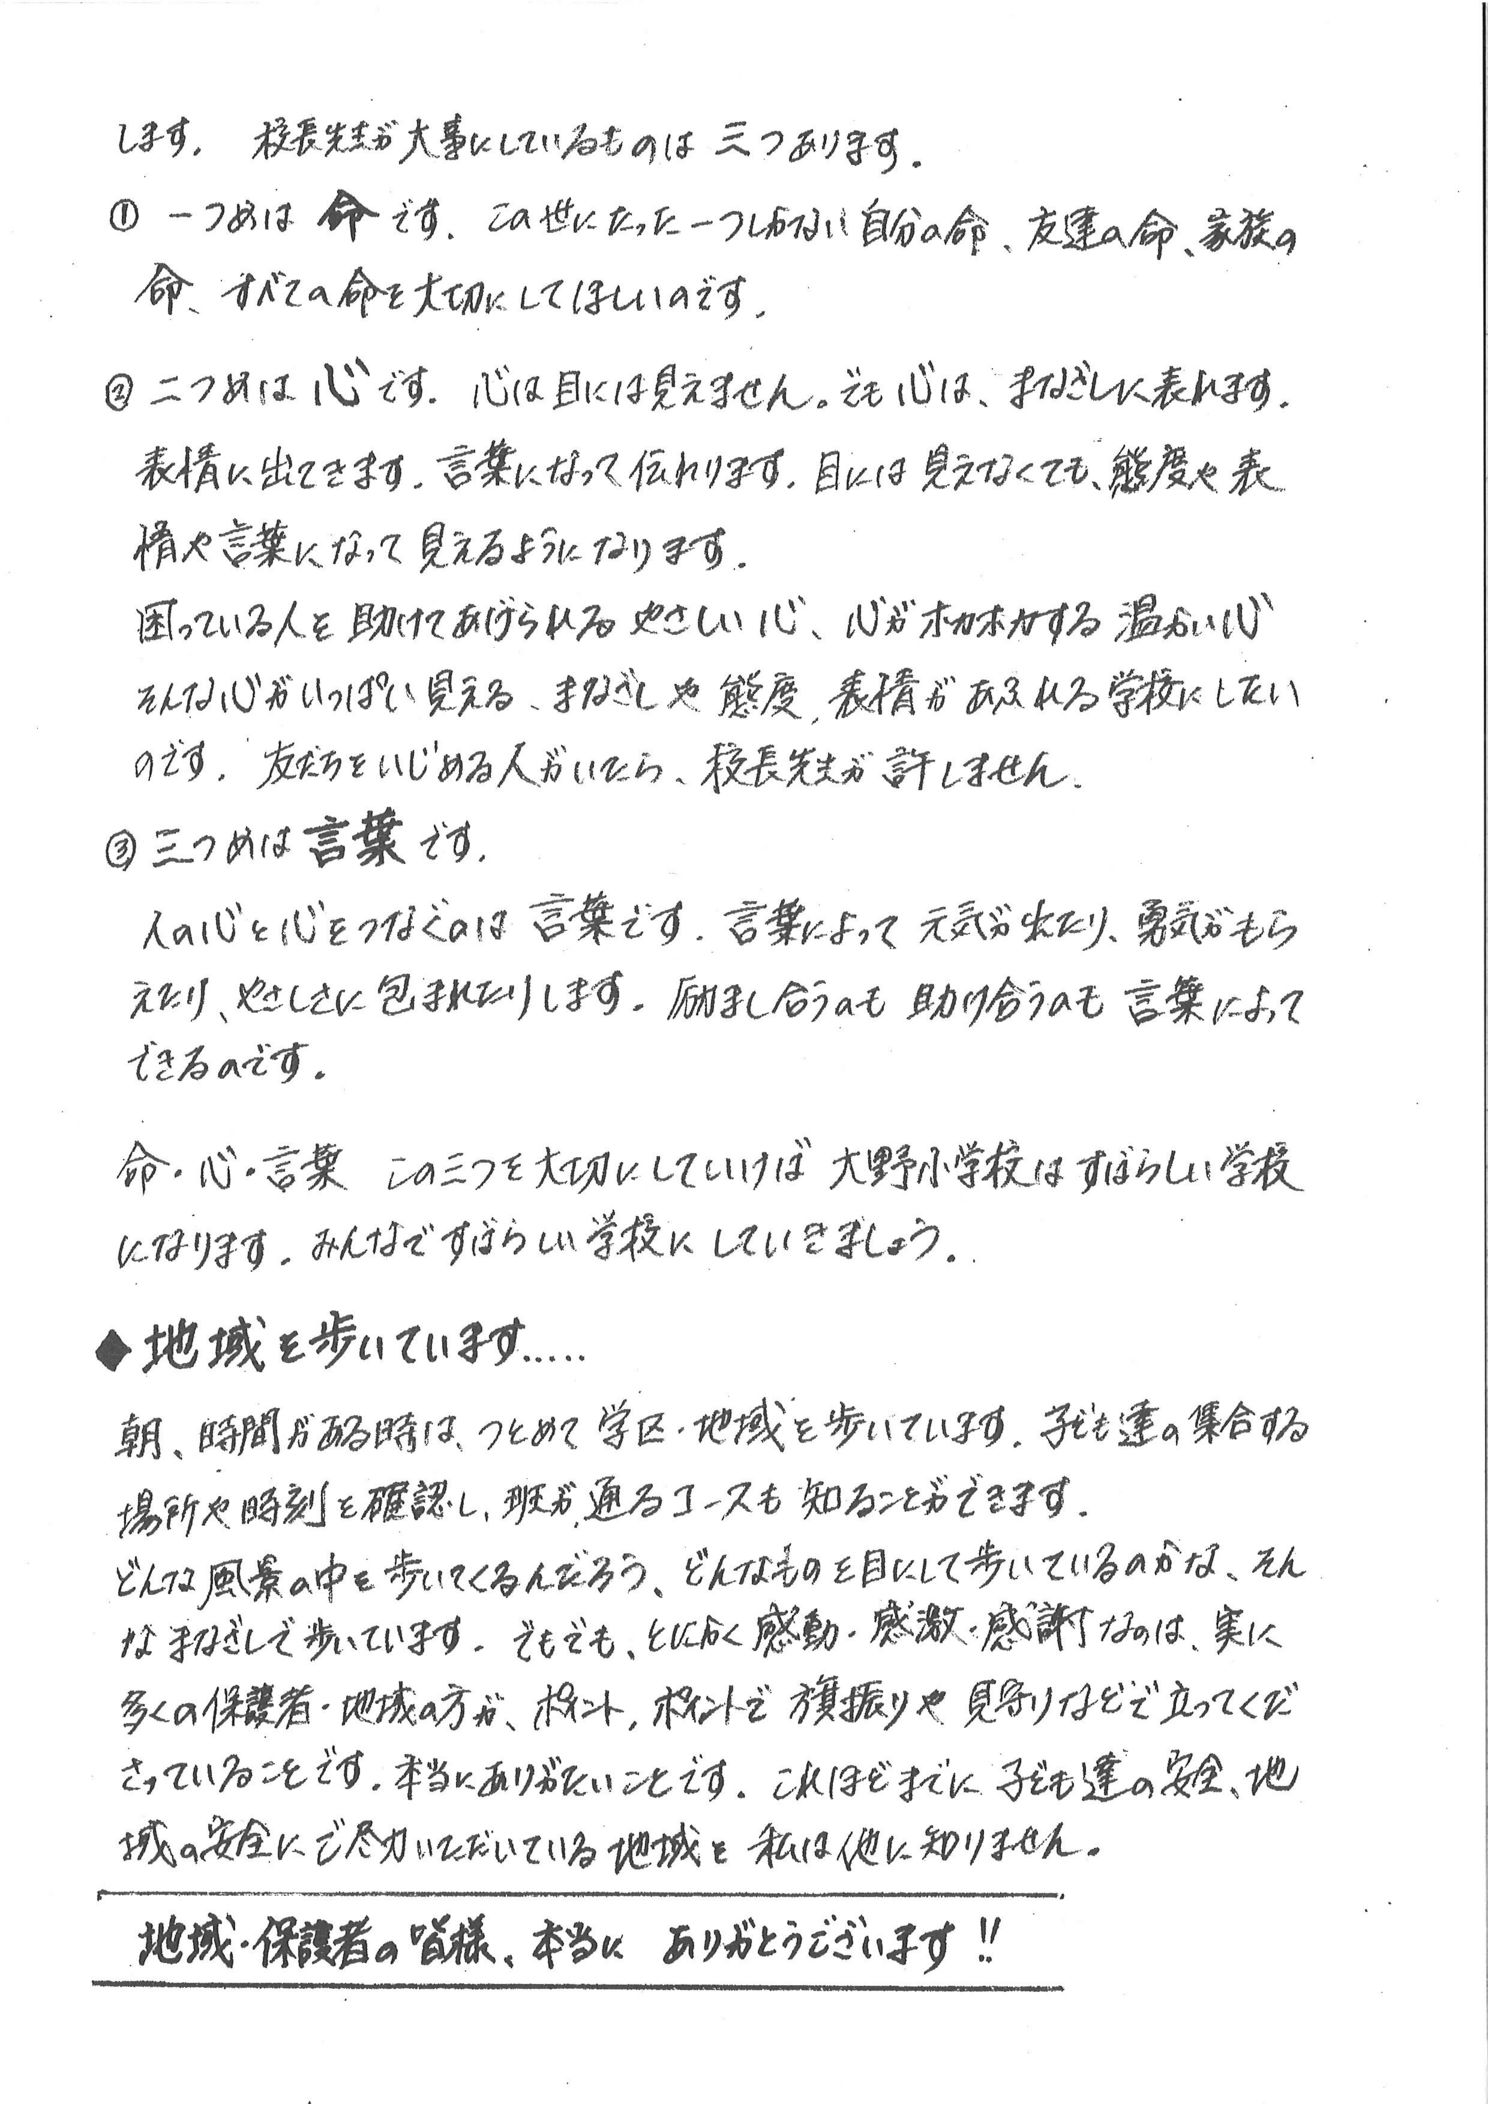 します。 校長先生が大事にしているものは三つあります。
① 一つめは命です。この世にたった一つしかない自分の命、友達の命、家族の
命、すべての命を大切にしてほしいのです。
② 二つめは心です。心は目には見えません。でも心は、まなざしに表れます。
表情に出てきます。言葉になって伝わります。目には見えなくても、態度や表
情や言葉になって見えるようになります。
困っている人を助けてあげられるやさしい心、心がホカホカする温かい心
そんな心がいっぱい見える、まなざしや態度、表情があふれる学校にしたい
のです。友だちをいじめる人がいたら、校長先生が許しません。
③ 三つめは言葉です。
人の心と心をつなぐのは言葉です。言葉によって元気が出たり、勇気がもら
えたり、やさしさに包まれたりします。励まし合うのも助け合うのも言葉によって
できるのです。
命・心・言葉 この三つを大切にしていけば大野小学校はすばらしい学校
になります。みんなですばらしい学校にしていきましょう。
◆地域を歩いています.....
朝、時間がある時は、つとめて学区・地域を歩いています。子ども達の集合する
場所や時刻を確認し、班が通るコースも知ることができます。
どんな風景の中を歩いてくるんだろう、どんなものを目にして歩いているのかな、そん
なまなざしで歩いています。でもでも、とにかく感動・感激・感謝なのは、実に
多くの保護者・地域の方が、ポイント、ポイントで旗振りや見守りなどで立ってくだ
さっていることです。本当にありがたいことです。これほどまでに子ども達の安全、地
域の安全にご尽力いただいている地域を私は他に知りません。
地域・保護者の皆様、本当に ありがとうございます!!